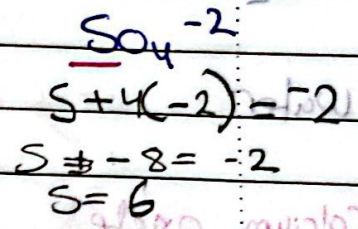 SO₄⁻²
S+4(-2) = -2
S + -8 = -2
S = 6